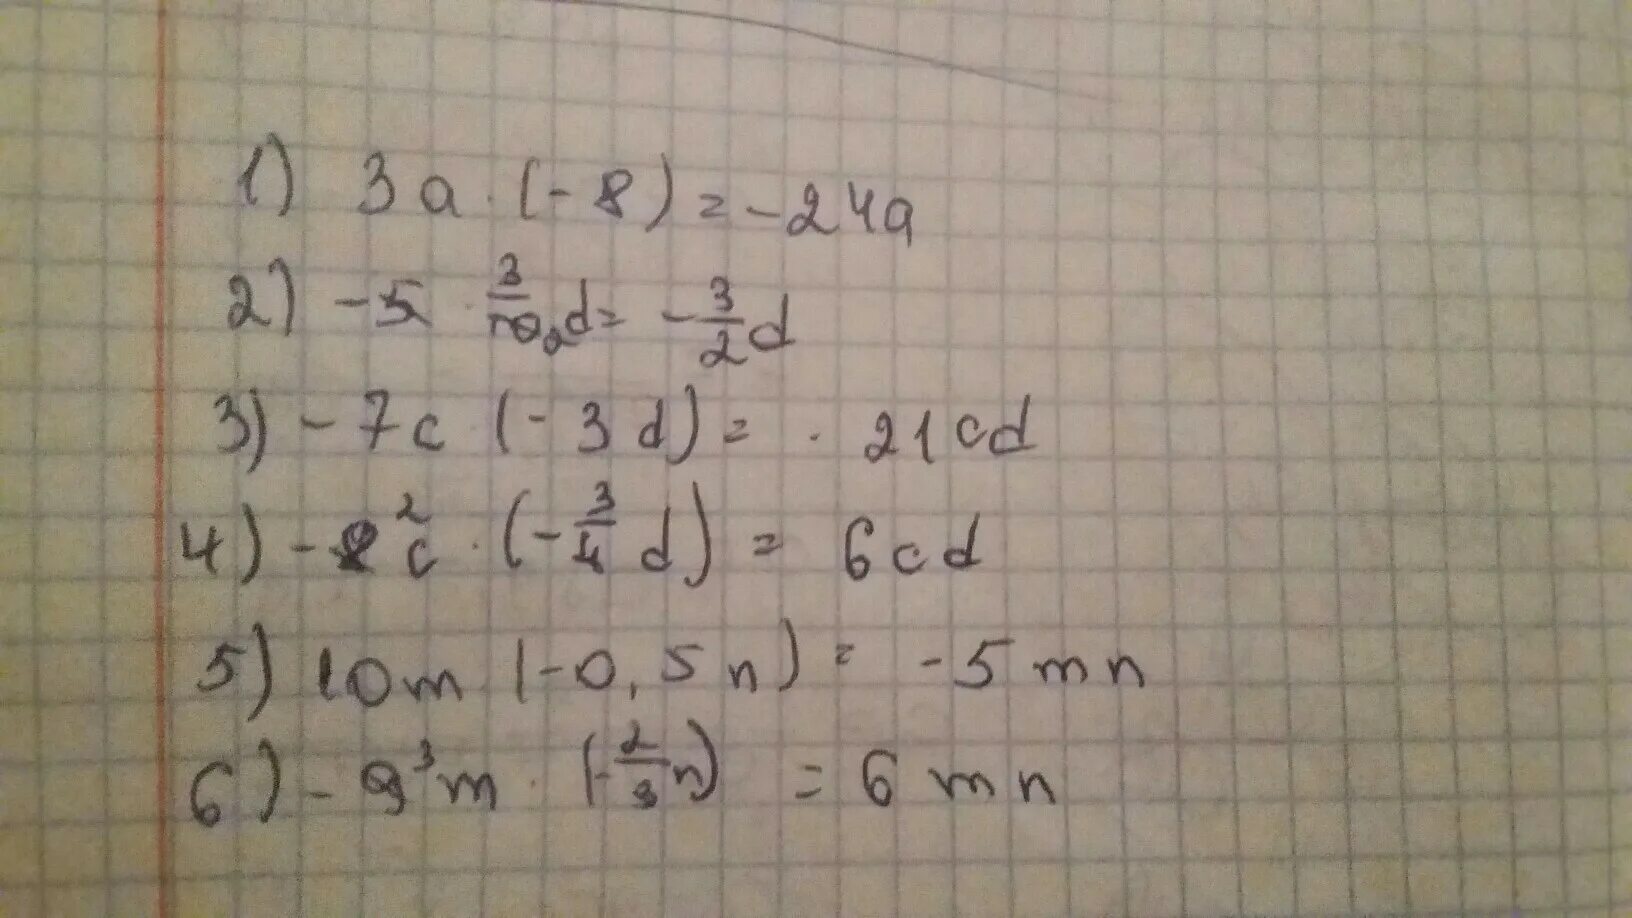 1) 3a · (-8) = -24a
2) -5 · 3/10 2 d = -3/2 d
3) -7c · (-3d) = 21cd
4) -8 2 c · (-3/4 d) = 6cd
5) 10m (-0,5n) = -5mn
6) -9 3 m · (-2/3 n) = 6mn